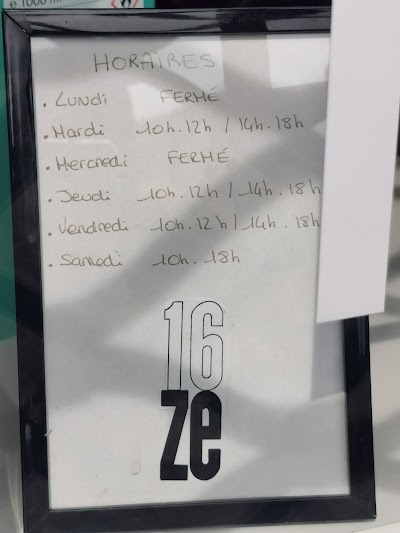 e 1000 m
HORAIRES
. Lundi FERMÉ
. Mardi 10h.12h / 14h.18h
. Mercredi FERMÉ
. Jeudi 10h.12h / 14h.18h
. Vendredi 10h.12h / 14h.18h
. Samedi 10h.18h
16
ze